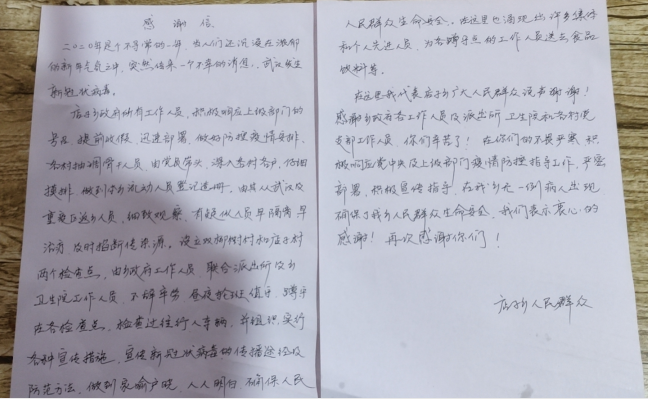 感谢信
2020年是个不寻常的一年,当人们还沉浸在浓郁
的新年气氛之中,突然传来一个不幸的消息,武汉发生
新冠状病毒。
店子乡政府所有工作人员,积极响应上级部门的
号召,提前收假,迅速部署,做好防控疫情安排,
各村抽调骨干人员,由党员带头,深入各村各户,仔细
摸排,做到本乡流动人员登记造册,由其从武汉及
重疫区返乡人员,细致观察,有疑似人员早隔离早
治疗,及时掐断传染源。设立双柳树村和店子村
两个检查点,由乡政府工作人员,联合派出所及乡
卫生院工作人员,不辞辛劳,昼夜轮班值守,蹲守
在各检查点,检查过往行人车辆,并组织实行
各种宣传措施,宣传新冠状病毒的传播途径及
防范方法,做到家喻户晓,人人明白,确保人民
人民群众生命安全,在这里也涌现出许多集体
和个人先进人员,为各蹲守点的工作人员送去食品
饮料等。
在这里我代表店子乡广大人民群众说声谢谢!
感谢乡政府各工作人员及派出所卫生院和各村党
支部工作人员,你们辛苦了!在你们的不畏严寒,积
极响应党中央及上级部门疫情防控指导工作,严密
部署,积极宣传指导,在我乡无一例病人出现,
确保了我乡人民群众生命安全,我们表示衷心的
感谢!再次感谢你们!
店子乡人民群众